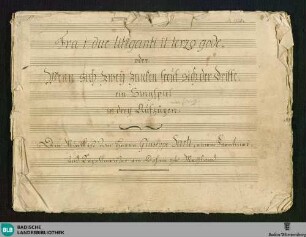 Fra i due litiganti il terzo gode.
oder
Wenn sich zwey zanken freut sich der Dritte.
ein Singspiel
in drey Aufzügen.
Die Musik ist von Herrn Giuseppe Sarti,
BLB BADISCHE
LANDESBIBLIOTHEK
Baden-Württemberg